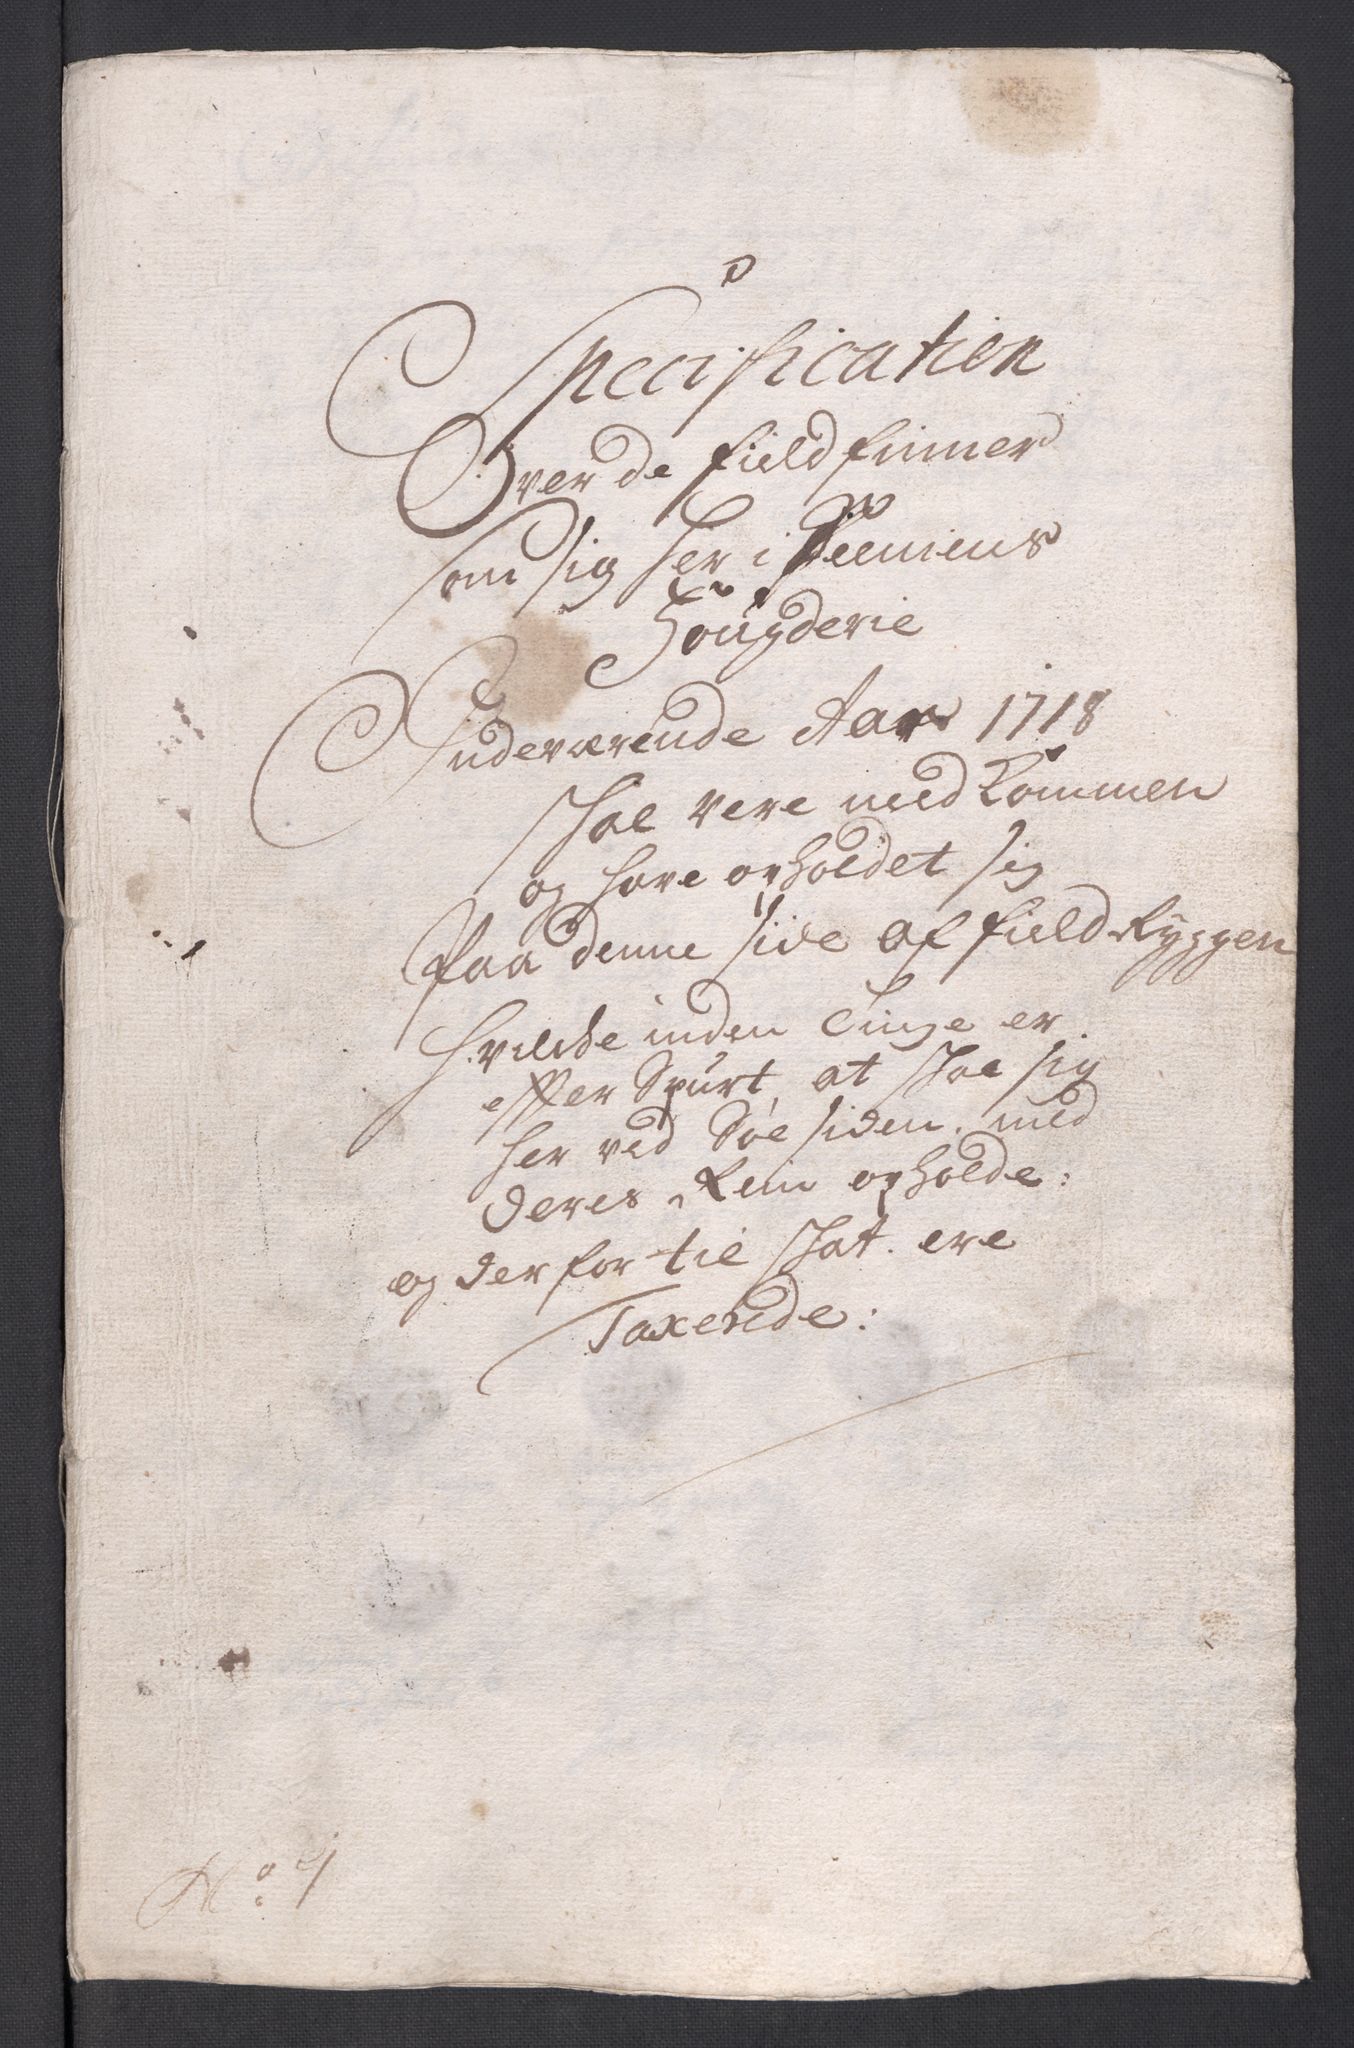 Specification
Over de field finner
som sig her i Senniens
Fougderie
Indeværende Aar 1718
skal vere nedkommen
og have opholdet sig
Paa denne side af field Ryggen
hvilcke inden Tinge er
effter Spurt, at skal sig
her ved Søe siden. med
deres Rein opholde:
og der for til skat. ere
Taxerede:
No 4